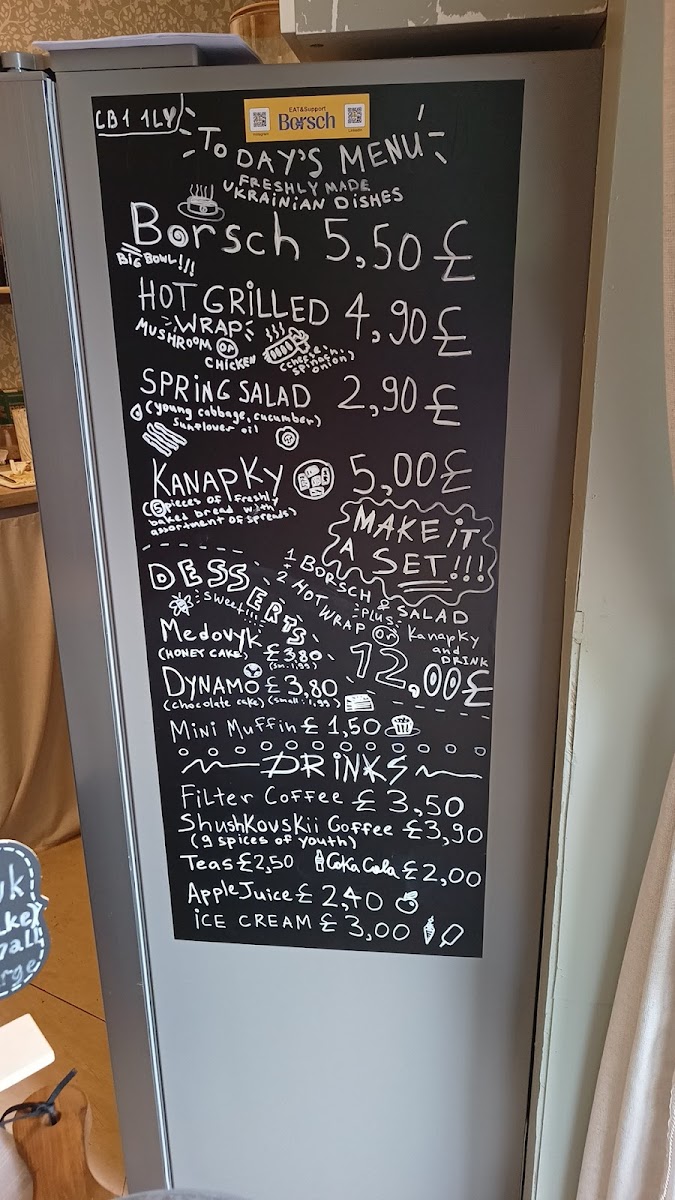 CB1 1LY
EAT&Support
Borsch
Instagram
LinkedIn
TODAY'S MENU
FRESHLY MADE
UKRAINIAN DISHES
Borsch 5,50 £
BIG BOWL!!!
HOT GRILLED 4,90 £
WRAP
MUSHROOM OR
CHICKEN
spinach,
onion)
SPRING SALAD 2,90 £
(young cabbage, cucumber)
sunflower oil
KANAPKY 5,00 £
(5 pieces of freshly
baked bread with
assortment of spreads)
MAKE IT
A SET!!!
1 BORSCH & SALAD
+
2 HOT WRAP OR Kanapky
PLUS
and
DRINK
12,00£
DESSERTS
Sweet!!!
Medovyk
(HONEY CAKE) £ 3,80
(sm: 1,99)
DYNAMO £ 3,80
(chocolate cake) (small: 1,99)
Mini Muffin £ 1,50
DRINKS
Filter Coffee £ 3,50
Shushkovskii Coffee £3,90
(9 spices of youth)
Teas £2,50 Coka Cola £ 2,00
Apple Juice £ 2,40
iCE CREAM £ 3,00